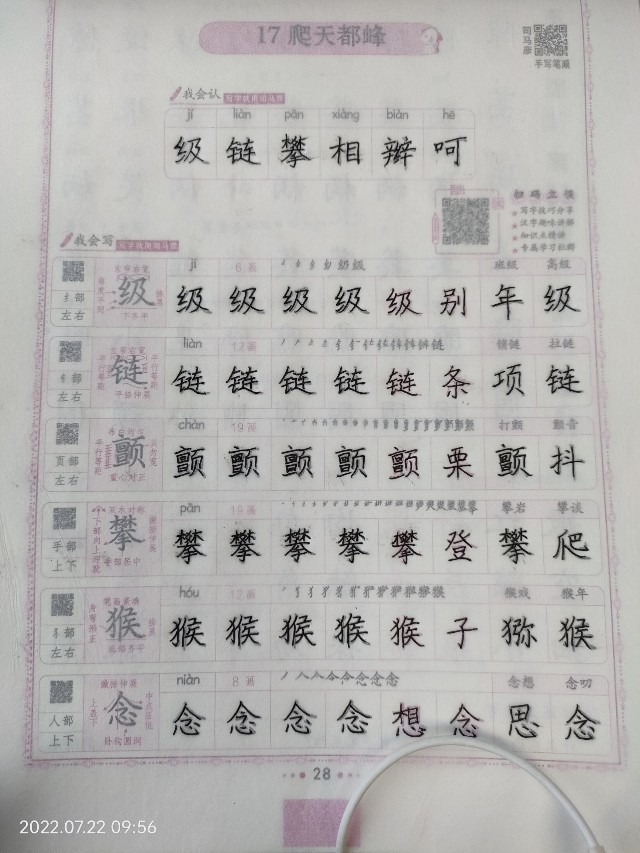 17 爬天都峰
司马彦
手写笔顺
我会认 写字就用司马彦
jí liàn pān xiàng biàn hē
级 链 攀 相 辩 呵
扫码立领
写字技巧分享
汉字趣味讲解
知识点精讲
专属学习社群
我会写 写字就用司马彦
jí 6画 班级 高级
纟部 左右 级 级 级 级 级 级 别 年 级
liàn 12画 锁链 拉链
钅部 左右 链 链 链 链 链 链 条 项 链
chàn 19画 打颤 颤音
页部 左右 颤 颤 颤 颤 颤 颤 栗 颤 抖
重心对正
pān 19画 攀岩 攀谈
手部 上下 攀 攀 攀 攀 攀 攀 登 攀 爬
hóu 12画 猴戏 猴年
犭部 左右 猴 猴 猴 猴 猴 猴 子 猕 猴
niàn 8画 念想 念叨
人部 上下 念 念 念 念 念 想 念 思 念
卧钩圆润
28
2022.07.22 09:56